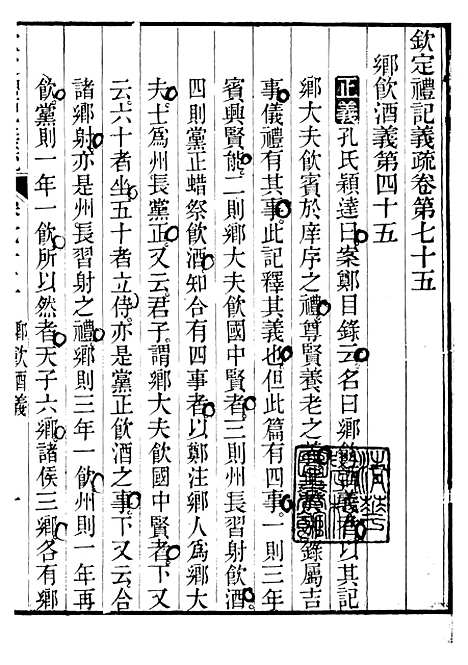 欽定禮記義疏卷第七十五
鄉飲酒義第四十五
正義孔氏穎達曰案鄭目錄云名曰鄉飲酒義者以其記
鄉大夫飲賓於庠序之禮尊賢養老之義别錄屬吉
事儀禮有其事此記釋其義也但此篇有四事一則三年
賓興賢能二則鄉大夫飲國中賢者三則州長習射飲酒
四則黨正蜡祭飲酒知合有四事者以鄭注鄉人爲鄉大
夫士爲州長黨正又云君子謂鄉大夫飲國中賢者下又
云六十者坐五十者立侍亦是黨正飲酒之事下又云合
諸鄉射亦是州長習射之禮鄉則三年一飲州則一年再
飲黨則一年一飲所以然者天子六鄉諸侯三鄉各有鄉
鄉飲酒義
一